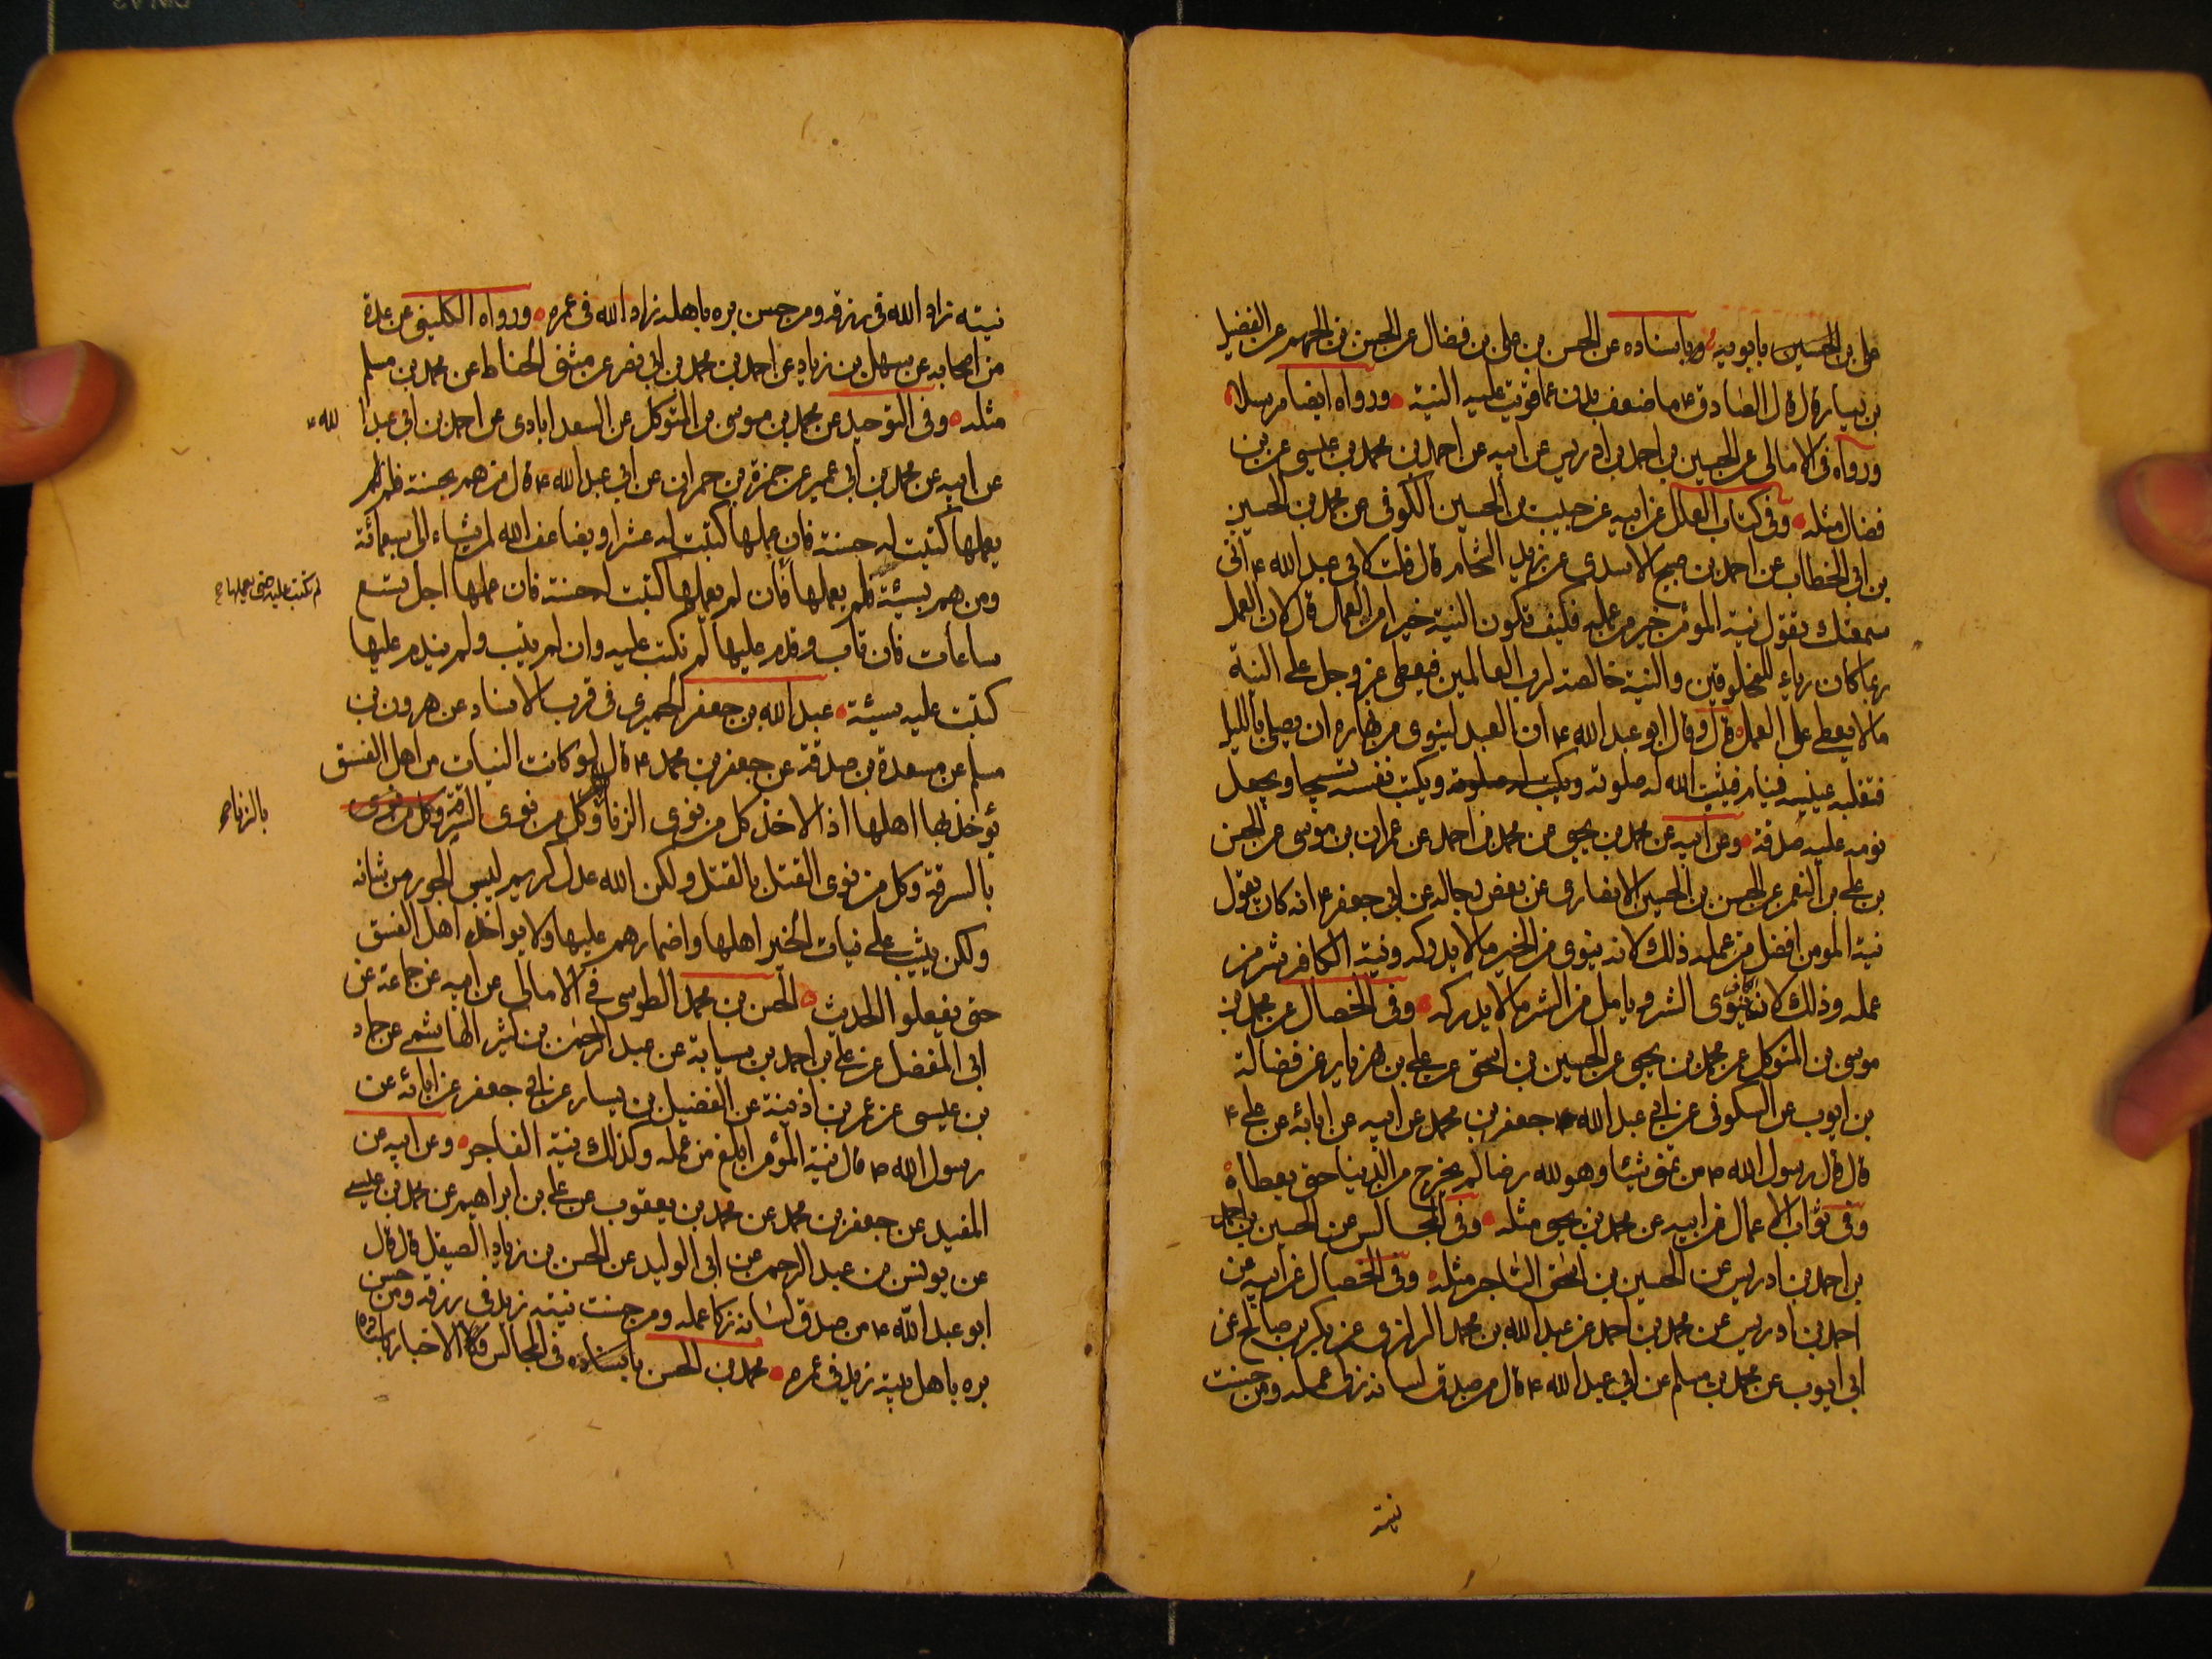 علي بن الحسين بابويه وباسناده عن الحسن بن علي بن فضال عن الحسن بن الجهم عن الفضيل
بن يسار قال قال الصادق ع ما ضعف بدن عما قويت عليه النية ورواه ايضا مرسلا
ورواه في الامالي عن الحسين بن احمد بن ادريس عن ابيه عن احمد بن محمد بن عيسى عن بن
فضال مثله وفي كتاب العلل عن ابيه عن حبيب بن الحسين الكوفي عن محمد بن الحسين
بن ابي الخطاب عن احمد بن صبيح الاسدي عن زيد الشحام قال قلت لابي عبد الله ع اني
سمعتك تقول نية المؤمن خير من عمله فكيف تكون النية خيرا من العمل قال لان العمل
ربما كان رياء للمخلوقين والنية خالصة لرب العالمين فيعطي عز وجل على النية
ما لا يعطي على العمل قال وقال ابو عبد الله ع ان العبد لينوي من نهاره ان يصلي بالليل
فتغلبه عينيه فينام فيثبت الله له صلوته ويكتب نفسه تسبيحا ويجعل
نومه عليه صدقة وعن ابيه عن محمد بن يحيى عن محمد بن احمد عن عمران بن موسى عن الحسن
بن علي بن النعمن عن الحسن بن الحسين الانصاري عن بعض رجاله عن ابي جعفر ع انه كان يقول
نية المومن افضل من عمله ذلك لانه ينوي من الخير ما لا يدركه ونية الكافر شر من
عمله وذلك لان الكافر ينوي الشر ويامل من الشر ما لا يدركه وفي الخصال عن محمد بن
موسى بن المتوكل عن محمد بن يحيى عن الحسين بن اسحق عن علي بن مهزيار عن فضالة
بن ايوب عن السكوني عن ابي عبد الله جعفر بن محمد عن ابيه عن ابائه عن علي ع
قال قال رسول الله ص من تمنى شيئا وهو لله رضا لم يخرج من الدنيا حتى يعطاه
وفي ثواب الاعمال عن ابيه عن محمد بن يحيى مثله وفي المجالس عن الحسين بن احمد
بن احمد بن ادريس عن الحسين بن اسحق التاجر مثله وفي الخصال عن ابيه عن
احمد بن ادريس عن محمد بن احمد عن عبد الله بن محمد الرازي عن بكر بن صالح عن
ابي ايوب عن محمد بن مسلم عن ابي عبد الله ع قال من صدق لسانه زكى عمله ومن حسنت
نيته
نيته زاد الله في رزقه ومن حسن بره باهله زاد الله في عمره ورواه الكليني عن عدة
من اصحابه عن سهل بن زياد عن احمد بن محمد بن ابي نصر عن مثنى الحناط عن محمد بن مسلم
مثله وفي التوحيد عن محمد بن موسى بن المتوكل عن السعد ابادي عن احمد بن ابي عبد الله
عن ابيه عن محمد بن ابي عمير عن حمزة بن حمران عن ابي عبد الله ع قال من هم بحسنة فلم
يعملها كتبت له حسنة فان عملها كتبت له عشرا ويضاعف الله لمن يشاء الى سبعمائة
ومن هم بسيئة فلم يعملها فان لم يعملها كتبت له حسنة فان عملها اجل تسع
لم تكتب عليه حتى يعملها
ساعات فان تاب وندم عليها لم تكتب عليه وان لم يتب ولم يندم عليها
كتبت عليه سيئة عبد الله بن جعفر الحميري في قرب الاسناد عن هرون بن
مسلم عن مسعدة بن صدقة عن جعفر بن محمد ع قال لو كانت النيات من اهل الفسق
يؤخذ بها اهلها اذا لاخذ كل من نوى الزنا وكل من نوى السرقة
بالزنا
بالسرقة وكل من نوى القتل بالقتل ولكن الله عدل كريم ليس الجور من شانه
ولكن يثيب على نيات الخير اهلها واضمارهم عليها ولا يواخذ اهل الفسق
حتى يفعلوا الحديث الحسن بن محمد الطوسي في الامالي عن ابيه عن جماعة عن
ابي المفضل عن علي بن احمد بن سيابة عن عبد الرحمن بن كثير الهاشمي عن حماد
بن عيسى عن عمر بن اذينة عن الفضيل بن يسار عن ابي جعفر عن ابائه عن
رسول الله ص قال نية المؤمن ابلغ من عمله وكذلك نية الفاجر وعن ابيه عن
المفيد عن جعفر بن محمد عن محمد بن يعقوب عن علي بن ابراهيم عن محمد بن عيسى
عن يونس بن عبد الرحمن عن ابي الوليد عن الحسن بن زياد الصيقل قال قال
ابو عبد الله ع من صدق لسانه زكا عمله ومن حسنت نيته زيد في رزقه ومن حسن
بره باهل بيته زيد في عمره محمد بن الحسن باسناده في المجالس والاخبار باسناده